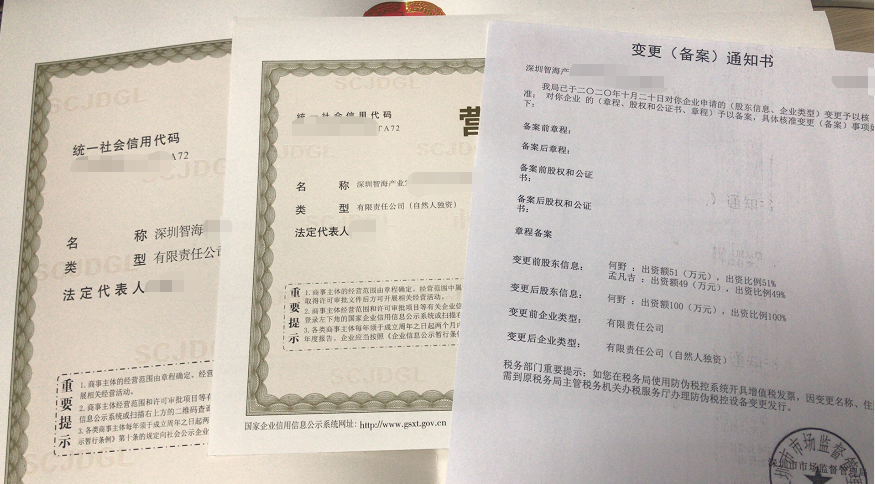 SCJDGL
统一社会信用代码
A72
名 称 深圳智海
类 型 有限责任公司
法定代表人
重要提示
1. 商事主体的经营范围由章程确定。经营
展相关经营活动。
2. 商事主体经营范围和许可审批项目等有
信息公示系统或扫描右上方的二维码查询
3. 各类商事主体每年须于成立周年之日起两
示暂行条例》第十条的规定向社会公示企业
SCJDGL
统一社会信用代码
A72
营
名 称 深圳智海产业
类 型 有限责任公司（自然人独资）
法定代表人
重要提示
1. 商事主体的经营范围由章程确定。经营范围中属
取得许可审批文件后方可开展相关经营活动。
2. 商事主体经营范围和许可审批项目等有关企业信
登录左下角的国家企业信用信息公示系统或扫描右
3. 各类商事主体每年须于成立周年之日起两个月内
年度报告。企业应当按照《企业信息公示暂行条
国家企业信用信息公示系统网址: http://www.gsxt.gov.cn
变更（备案）通知书
深圳智海产
我局已于二〇二〇年十月二十日对你企业申请的（股东信息、企业类型）变更予以核
准；对你企业 的（章程、股权和公证书、章程）予以备案，具体核准变更（备案）事项如
下：
备案前章程：
备案后章程：
备案前股权和公证
书：
备案后股权和公证
书：
章程备案
变更前股东信息： 何野：出资额51（万元），出资比例51%
孟凡吉：出资额49（万元），出资比例49%
变更后股东信息： 何野：出资额100（万元），出资比例100%
变更前企业类型： 有限责任公司
变更后企业类型： 有限责任公司（自然人独资）
税务部门重要提示：如您在税务局使用防伪税控系统开具增值税发票，因变更名称、住
需到原税务局主管税务机关办税服务厅办理防伪税控设备变更发行。
深圳市市场监督管理局